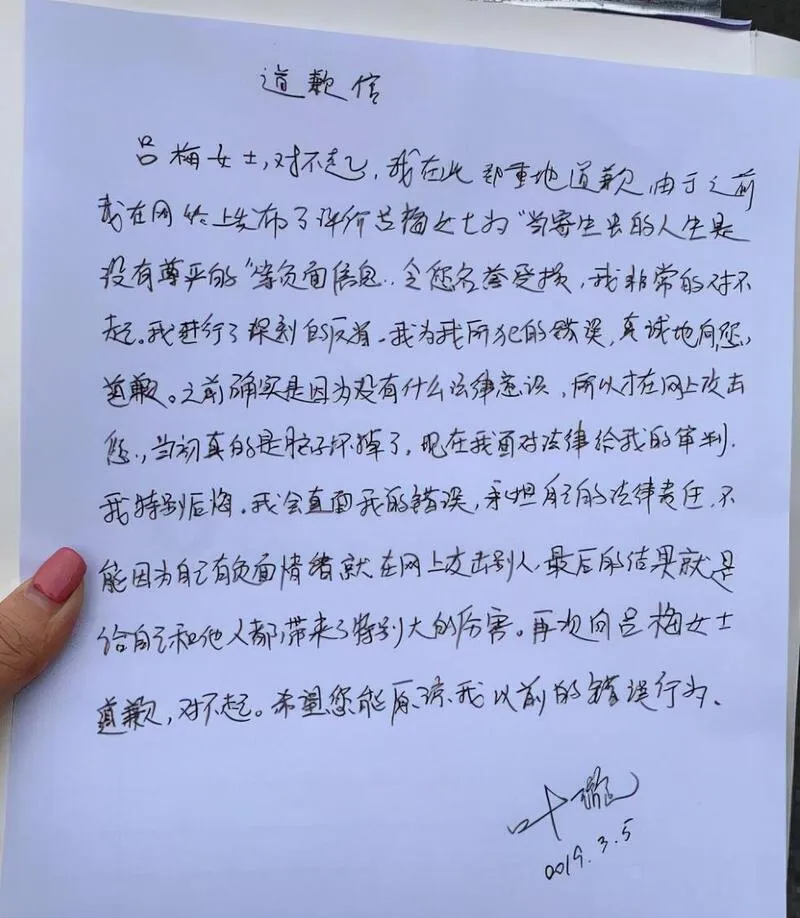 道歉信
吕梅女士，对不起，我在此郑重地道歉，由于之前
我在网络上发布了评价吕梅女士为“当寄生虫的人生是
没有尊严的”等负面信息，令您名誉受损，我非常的对不
起。我进行了深刻的反省。我为我所犯的错误，真诚地向您，
道歉。之前确实是因为没有什么法律意识，所以才在网上攻击
您，当初真的是脑子坏掉了，现在我面对法律给我的审判.
我特别后悔。我会直面我的错误，承担自己的法律责任，不
能因为自己有负面情绪就在网上攻击别人，最后的结果就是
给自己和他人都带来了特别大的伤害。再次向吕梅女士
道歉，对不起。希望您能原谅我以前的错误行为。
叶璇
2019.3.5